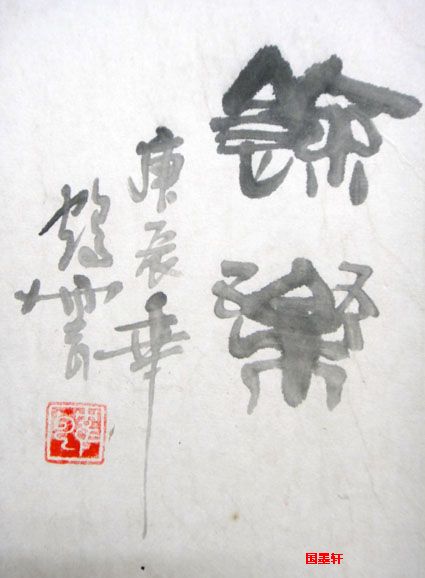 餘樂
庚辰華
国墨轩